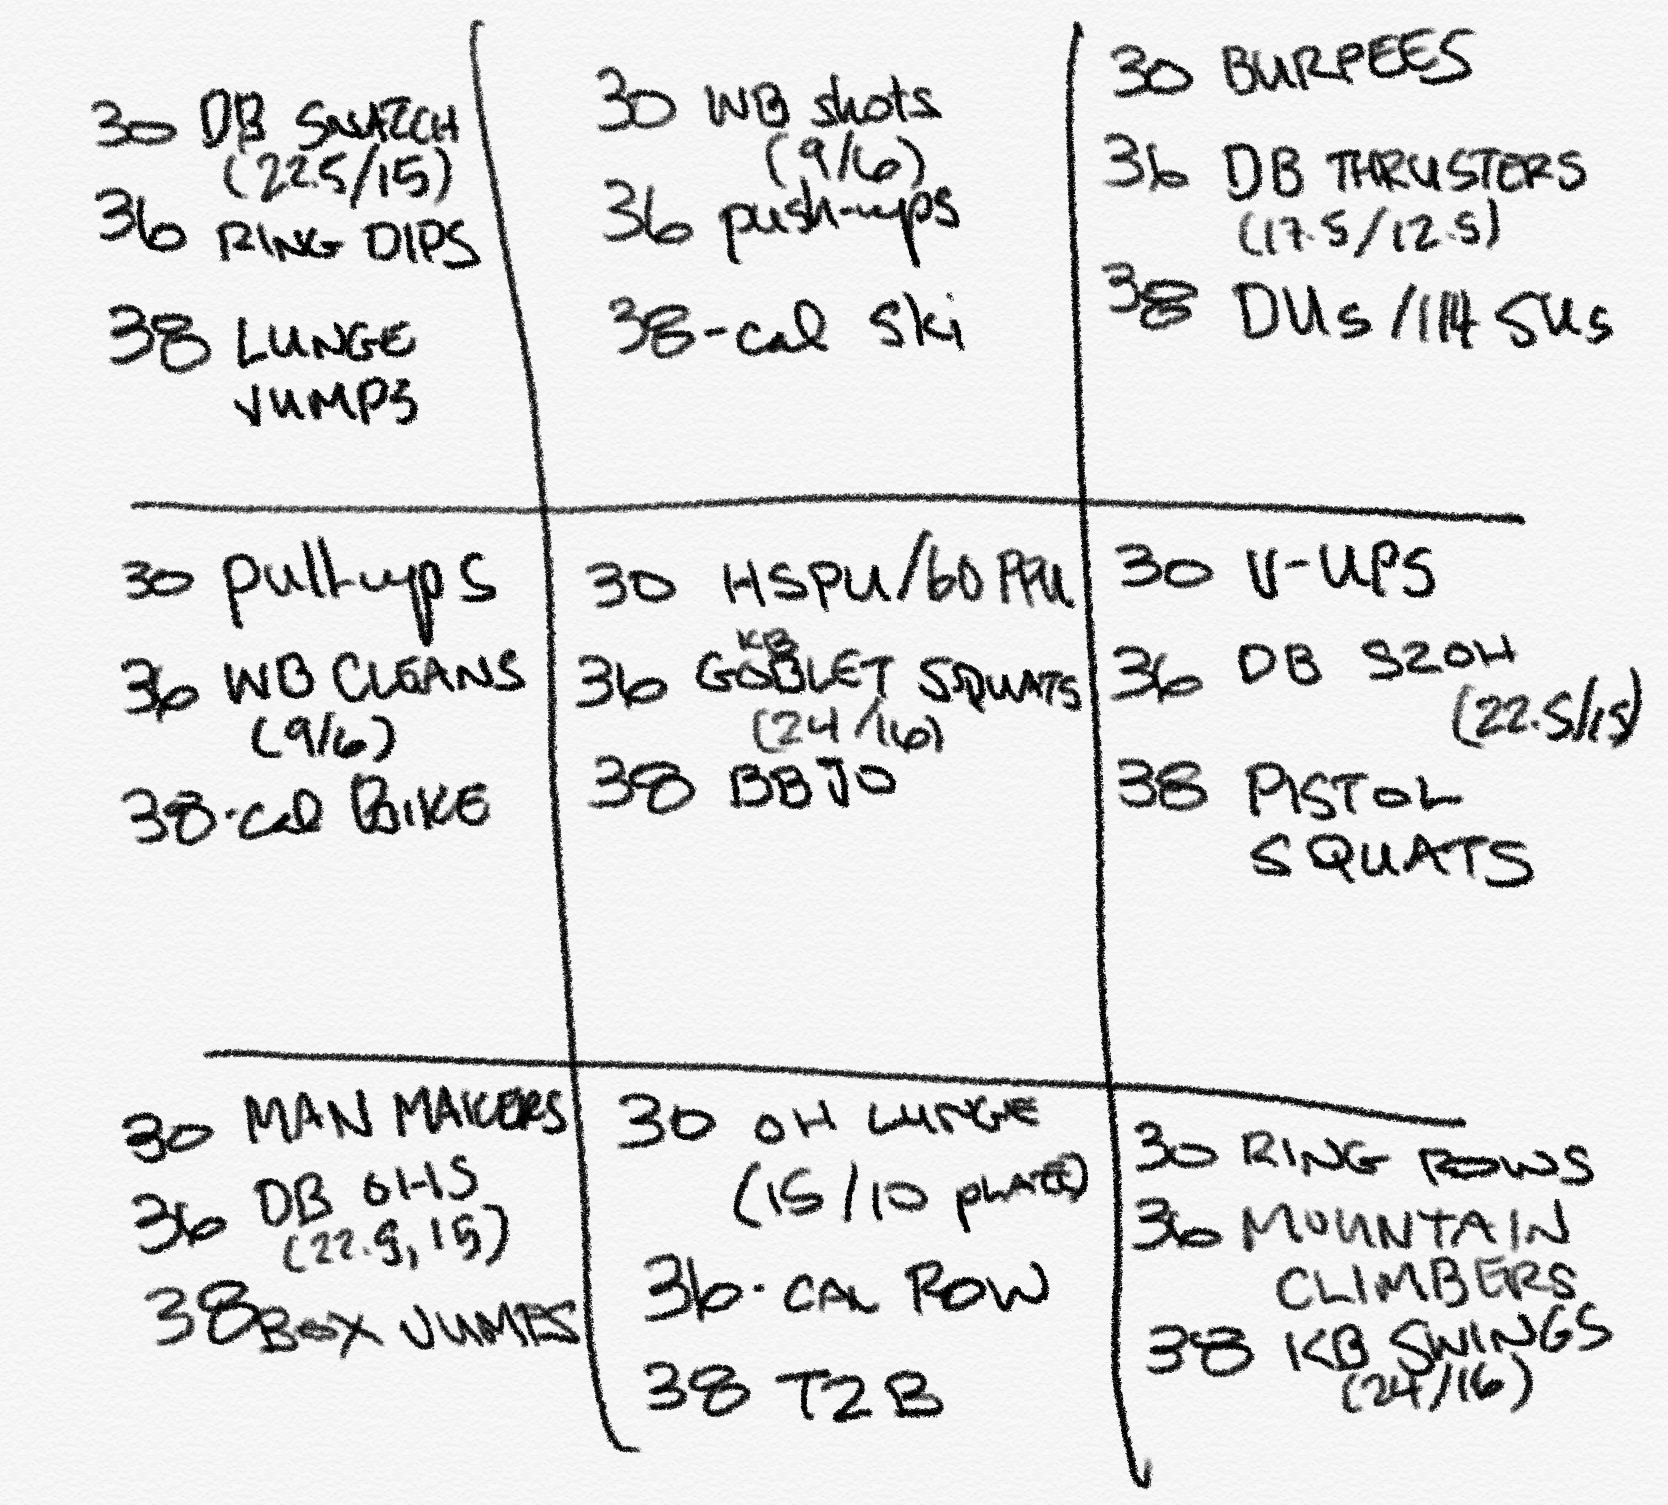 30 DB SNATCH
(22.5/15)
36 RING DIPS
38 LUNGE
JUMPS
30 WB shots
(9/6)
36 push-ups
38-cal Ski
30 BURPEES
36 DB THRUSTERS
(17.5/12.5)
38 DUs/114 SUs
30 pull-ups
36 WB CLEANS
(9/6)
38-cal BIKE
30 HSPU/60 PPU
KB
36 GOBLET SQUATS
(24/16)
38 BBJO
30 V-UPS
36 DB S2OH
(22.5/15)
38 PISTOL
SQUATS
30 MAN MAKERS
36 DB OHS
(22.5, 15)
38 BOX JUMPS
30 OH LUNGE
(15/10 PLATE)
36-CAL ROW
38 T2B
30 RING ROWS
36 MOUNTAIN
CLIMBERS
38 KB SWINGS
(24/16)